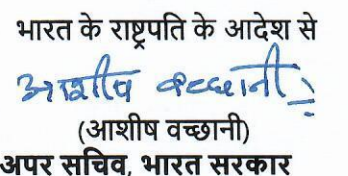 भारत के राष्ट्रपति के आदेश से
आशीष वच्छानी
(आशीष वच्छानी)
अपर सचिव, भारत सरकार